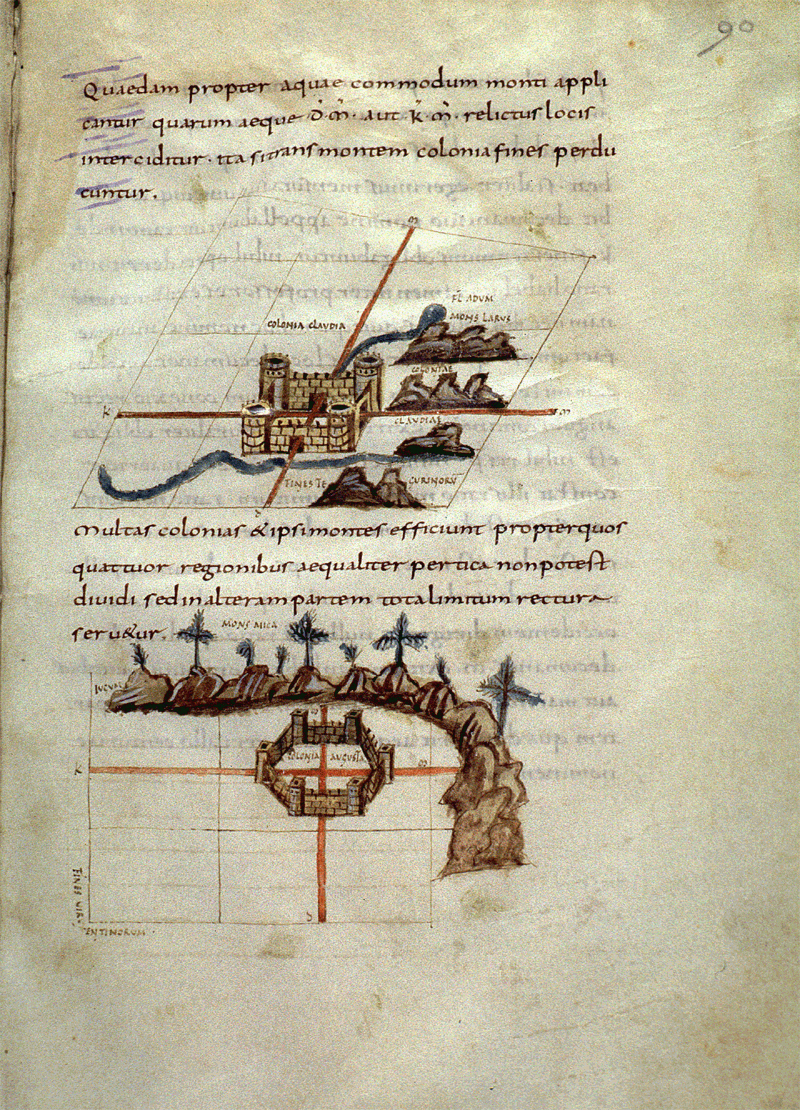 90
Quaedam propter aquae commodum monti appli
cantur quarum aeque d̄. m̄. aut k̄. m̄. relictus locis
interciditur. ita si trans montem colonia fines perdu
cuntur.
m
FL ADUM
MONS LARUS
COLONIA CLAUDIA
COLONIAE
k m
CLAUDIAE
FINES TE GURINORU
d
multas colonias & ipsi montes efficiunt propter quos
quattuor regionibus aequaliter pertica non potest
dividi sed in alteram partem tota limitum rectura
seru&ur.
MONS MICA
m
COLONIA AUGUSTA
k m
FINES
d
ENTINORUM